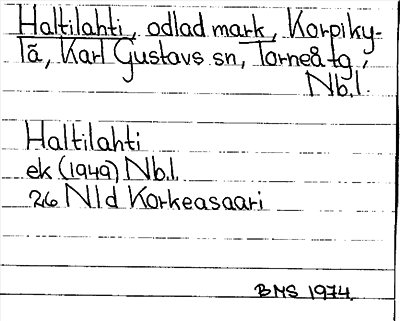 Haltilahti, odlad mark, Korpiky-
lä, Karl Gustavs sn, Torneå tg,
Nb.l.
Haltilahti
ek (1949) Nb.l.
26 Nld Korkeasaari
BMS 1974